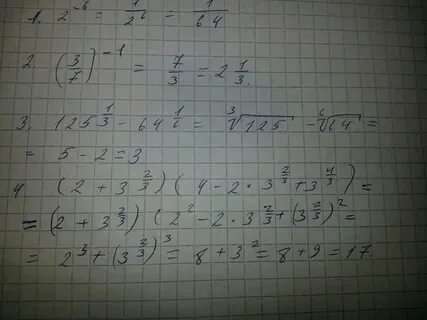 1. 2^{-6} = \frac{1}{2^6} = \frac{1}{64}
2 (\frac{3}{7})^{-1} = \frac{7}{3} = 2\frac{1}{3}.
3. 125^{\frac{1}{3}} - 64^{\frac{1}{6}} = \sqrt[3]{125} - \sqrt[6]{64} =
= 5 - 2 = 3
4 (2 + 3^{\frac{2}{3}})(4 - 2 \cdot 3^{\frac{2}{3}} + 3^{\frac{4}{3}}) =
= (2 + 3^{\frac{2}{3}})(2^2 - 2 \cdot 3^{\frac{2}{3}} + (3^{\frac{2}{3}})^2 =
= 2^3 + (3^{\frac{2}{3}})^3 = 8 + 3^2 = 8 + 9 = 17